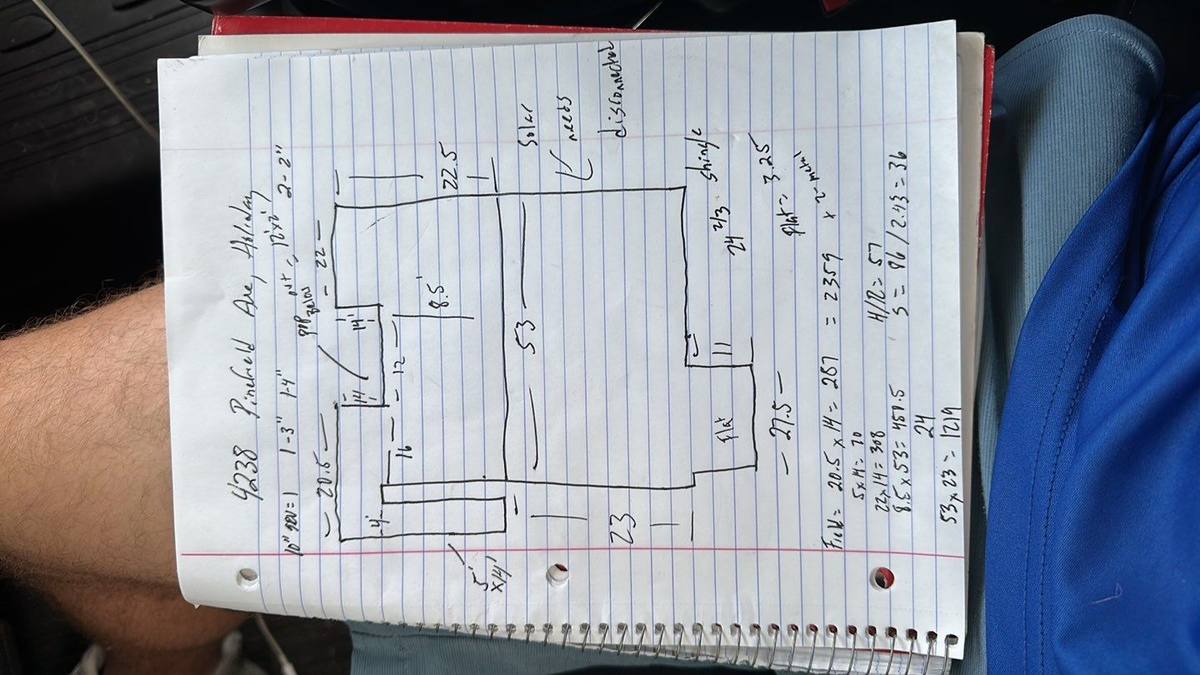 4238 Pinefield Ave, Holiday
10" goo = 1  1-3"  1-4"  12'x2'  2-2"
20.5
22
22.5
14'
14'
4'
16
12
8.5'
5'
x14'
53
Solar
needs
disconnected
23
11
Flat
24 2/3 Shingle
27.5
Flat = 3.25
Field = 20.5 x 14 = 287 = 2359 x
5x14 = 70
22x14 = 308  4/12 = 57
8.5 x 53 = 450.5  5 = 86/2.43 = 36
24
53 x 23 = 1219